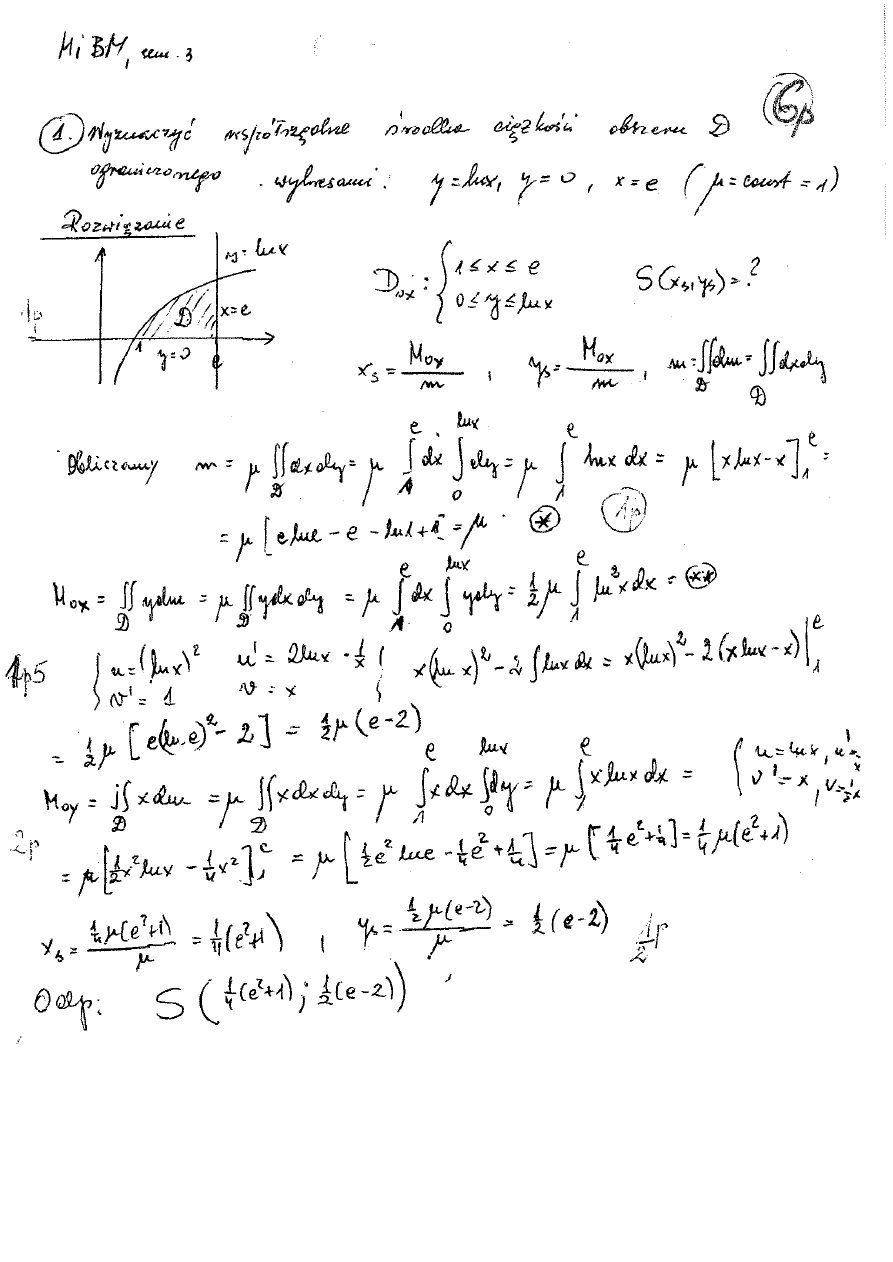 MiBM, sem. 3
6p
1. Wyznaczyć współrzędne środka ciężkości obszaru D
ograniczonego wykresami: y=lnx, y=0, x=e (μ=const=1)
Rozwiązanie
y=lnx
x=e
D
1
y=0
e
1p
D_ox: { 1≤x≤e
0≤y≤lnx
S(x_s, y_s)=?
x_s = M_ox/m , y_s = M_ox/m , m=∬_D dm=∬_D dxdy
Obliczamy m = μ ∬_D dxdy = μ ∫_1^e dx ∫_0^lnx dy = μ ∫_1^e lnx dx = μ [xlnx-x]_1^e =
= μ [elne - e - ln1+1] = μ (*) 1p
M_ox = ∬_D ydm = μ ∬_D ydxdy = μ ∫_1^e dx ∫_0^lnx ydy = 1/2 μ ∫_1^e ln²x dx = (**)
1p5 { u=(lnx)² u'=2lnx·1/x
v'=1 v=x } x(lnx)²-2∫lnxdx = x(lnx)²-2(xlnx-x)|_1^e
= 1/2 μ [e(lne)²-2] = 1/2 μ(e-2)
M_oy = ∬_D xdm = μ ∬_D xdxdy = μ ∫_1^e xdx ∫_0^lnx dy = μ ∫_1^e xlnxdx = { u=lnx, u'=1/x
v'=x, v=1/2x
2p = μ[1/2x²lnx - 1/4x²]_1^e = μ [1/2e²lne - 1/4e²+1/4] = μ [1/4e²+1/4] = 1/4 μ(e²+1)
x_s = 1/4μ(e²+1)/μ = 1/4(e²+1) , y_s = 1/2μ(e-2)/μ = 1/2(e-2) 1/2p
Odp: S (1/4(e²+1); 1/2(e-2))